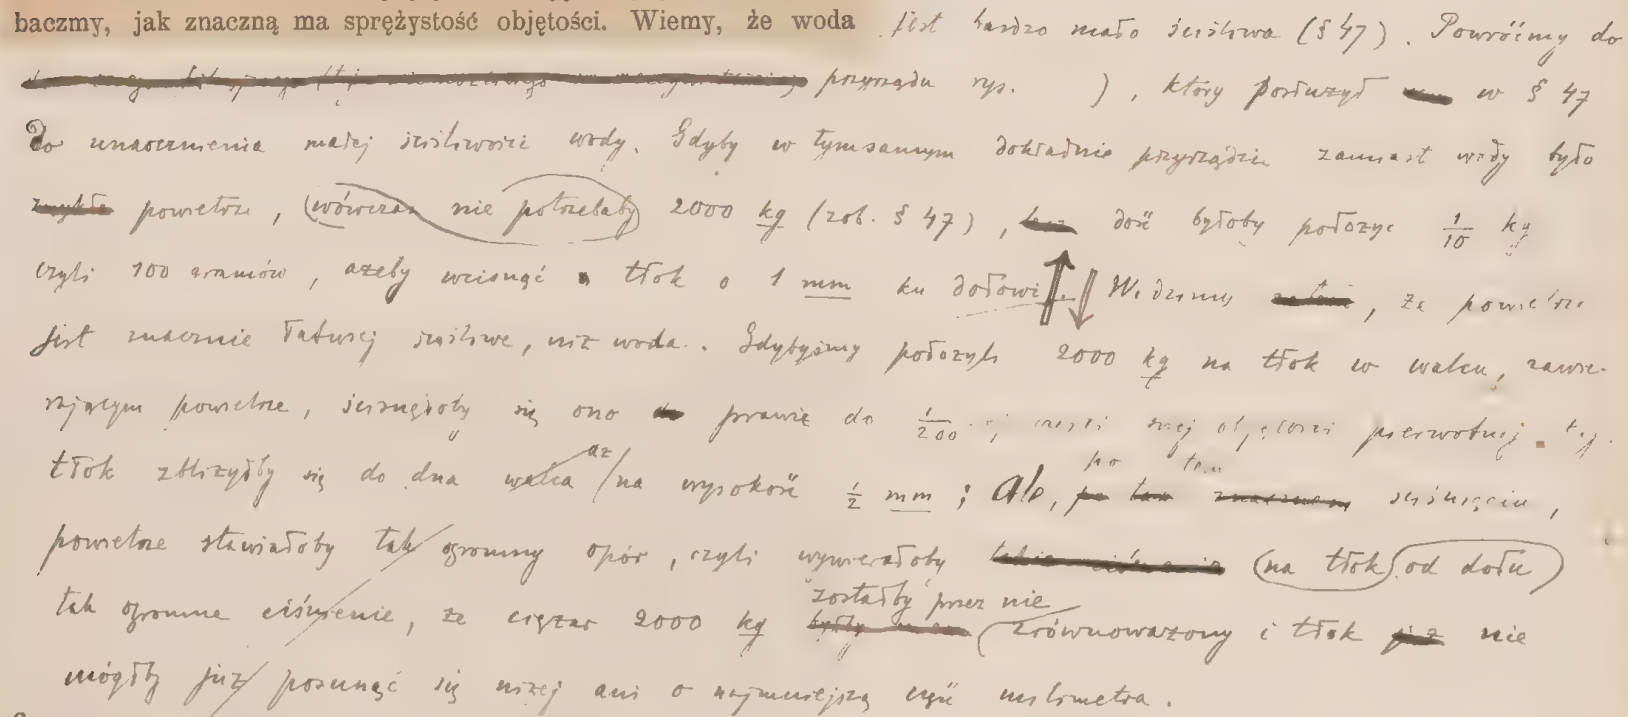 baczmy, jak znaczną ma sprężystość objętości. Wiemy, że woda jest bardzo mało ściśliwa (§ 47). Powróćmy do
przyrządu rys. ), który posłużył w § 47
do unaocznienia małej ściśliwości wody. Gdyby w tymsamym dokładnie przyrządzie zamiast wody było
zwykłe powietrze, (wówczas nie potrzebaby) 2000 kg (zob. § 47), lecz dość byłoby położyć 1/10 kg
czyli 100 gramów, ażeby wcisnąć tłok o 1 mm ku dołowi. Widzimy, że powietrze
jest znacznie łatwiej ściśliwe, niż woda. Gdybyśmy położyli 2000 kg na tłok w walcu, zawie-
rającym powietrze, ścisnęłoby się ono prawie do 1/200 ej części swej objętości pierwotnej, t. j.
tłok zbliżyłby się do dna walca aż na wysokość 1/2 mm; Ale, po tem ściśnięciu,
powietrze stawiałoby tak ogromny opór, czyli wywierałoby takie ciśnienie (na tłok) (od dołu)
tak ogromne ciśnienie, że ciężar 2000 kg zostałby przez nie zrównoważony i tłok już nie
mógłby już posunąć się niżej ani o najmniejszą część milimetra.